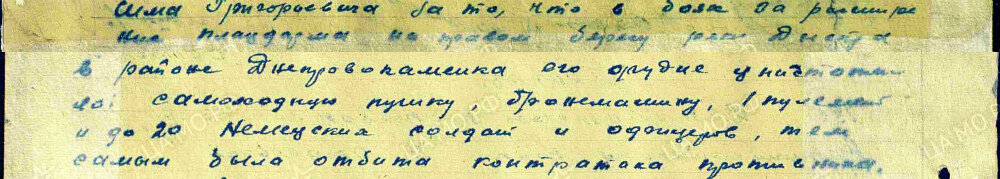 сима Григорьевича за то, что в боях за расшире
ние плацдарма на правом берегу реки Днепра
в районе Днепровокаменка его орудие уничтожи
ло самоходную пушку, бронемашину, 1 пулемет
и до 20 немецких солдат и офицеров, тем
самым была отбита контратака противника.